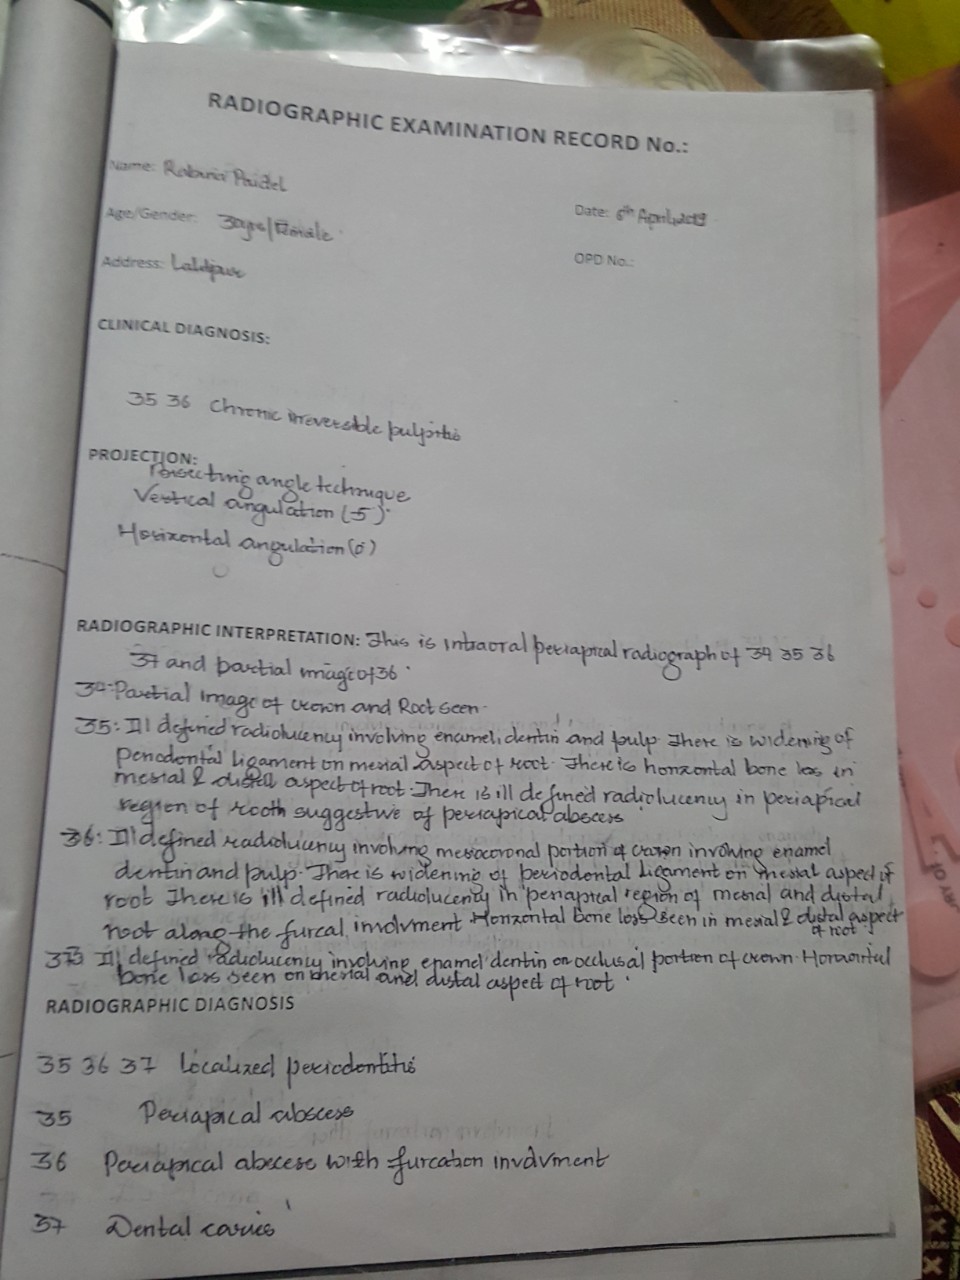 RADIOGRAPHIC EXAMINATION RECORD No.:
Name: Paudel
Date: 6th April,
Age/Gender: 30yrs/Female
OPD No.:
Address: Lalitpur
CLINICAL DIAGNOSIS:
35 36 Chronic irreversible pulpitis
PROJECTION:
Bisecting angle technique
Vertical angulation (-5)
Horizontal angulation (0)
RADIOGRAPHIC INTERPRETATION: This is intraoral periapical radiograph of 34 35 36
37 and partial image of 36
34: Partial image of crown and Root seen.
35: Ill defined radiolucency involving enamel, dentin and pulp. There is widening of
Periodontal ligament on mesial aspect of root. There is horizontal bone loss in
mesial & distal aspect of root. There is ill defined radiolucency in periapical
region of tooth suggestive of periapical abscess
36: Ill defined radiolucency involving mesiocoronal portion of crown involving enamel
dentin and pulp. There is widening of periodontal ligament on mesial aspect of
root There is ill defined radiolucency in periapical region of mesial and distal
root along the furcal involvment Horizontal bone loss seen in mesial & distal aspect
of root
37: Ill defined radiolucency involving enamel dentin on occlusal portion of crown. Horizontal
bone loss seen on mesial and distal aspect of root.
RADIOGRAPHIC DIAGNOSIS
35 36 37 Localized periodontitis
35 Periapical abscess
36 Periapical abscess with furcation involvment
37 Dental caries